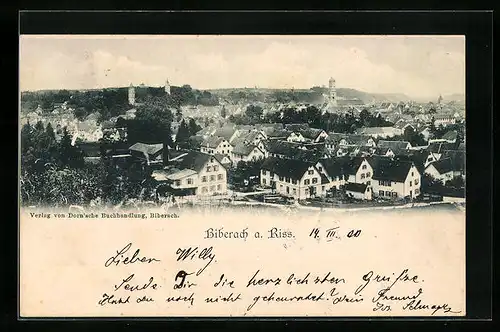 Verlag von Dorn'sche Buchhandlung, Biberach.
Biberach a. Riss. 14. III. 00
Lieben Willy
Sende Dir die herzlichsten Grüsze.
Hast du noch nicht geheuratet? Dein Freund
Jos.